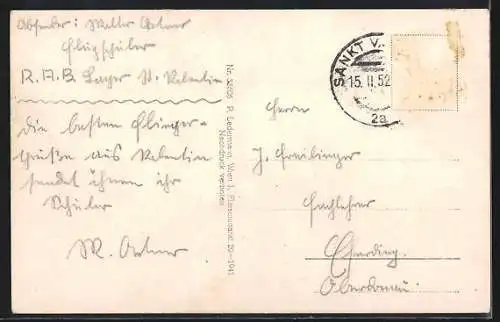 Absender: Walter
Flugschüler
R.A.B. Lager St. Valentin
Die besten Flieger-
Grüße aus Valentin
sendet ihnen ihr
Schüler
P. Ledermann, Wien I, Fleischmarkt 20-1941
Nachdruck verboten
SANKT V
15. II. 52
2a
Herrn
J. Freilinger
Fachlehrer
Scherding
Oberdonau